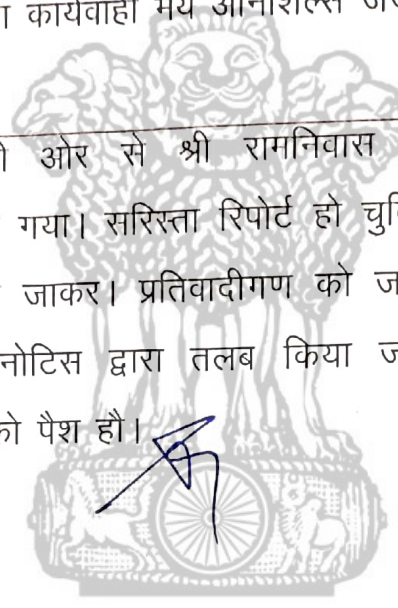 कार्यवाही मय
ओर से श्री रामनिवास
गया। सरिस्ता रिपोर्ट हो
जाकर। प्रतिवादीगण को
नोटिस द्वारा तलब किया
को पैश हौ।